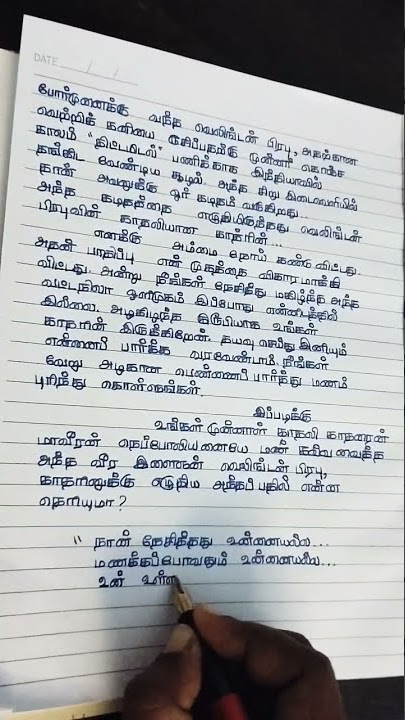 DATE / /
போர்முனைக்கு வந்த வெலிங்டன் பிரபு, அதற்கான
வெற்றிக் கனியை ருசிப்பதற்கு முன்னர் கொஞ்ச
காலம் "திட்டமிடல்" பணிக்காக இந்தியாவில்
தங்கிட வேண்டிய சூழல். அந்த சிறு இடைவெளியில்
தான் அவனுக்கு ஓர் கடிதம் வருகிறது..
அந்த கடிதத்தை எழுதியிருந்தது வெலிங்டன்
பிரபுவின் காதலியான காதரின்...
எனக்கு அம்மை நோய் கண்டு விட்டது.
அதன் பாதிப்பு என் முகத்தை விகாரமாக்கி
விட்டது. அன்று நீங்கள் நேசித்து மகிழ்ந்த அந்த
வட்டநிலா ஒளிமுகம் இப்போது என்னிடத்தில்
இல்லை. அழகிழந்த இருபியாக உங்கள்
காதரின் இருக்கிறேன். தயவு செய்து இனியும்
என்னைப் பார்க்க வரவேண்டாம். நீங்கள்
வேறு அழகான பெண்ணைப் பார்த்து மணம்
புரிந்து கொள்ளுங்கள்.
இப்படிக்கு
உங்கள் முன்னாள் காதலி காதரைன்
மாவீரன் நெப்போலியனையே மண் கவ்வ வைத்த
அந்த வீர இளைஞன் வெலிங்டன் பிரபு,
காதரினுக்கு எழுதிய அந்தப் பதில் என்ன
தெரியுமா?
" நான் நேசித்தது உன்னையல்ல...
மணக்கப்போவதும் உன்னையல்ல...
உன் உள்ள